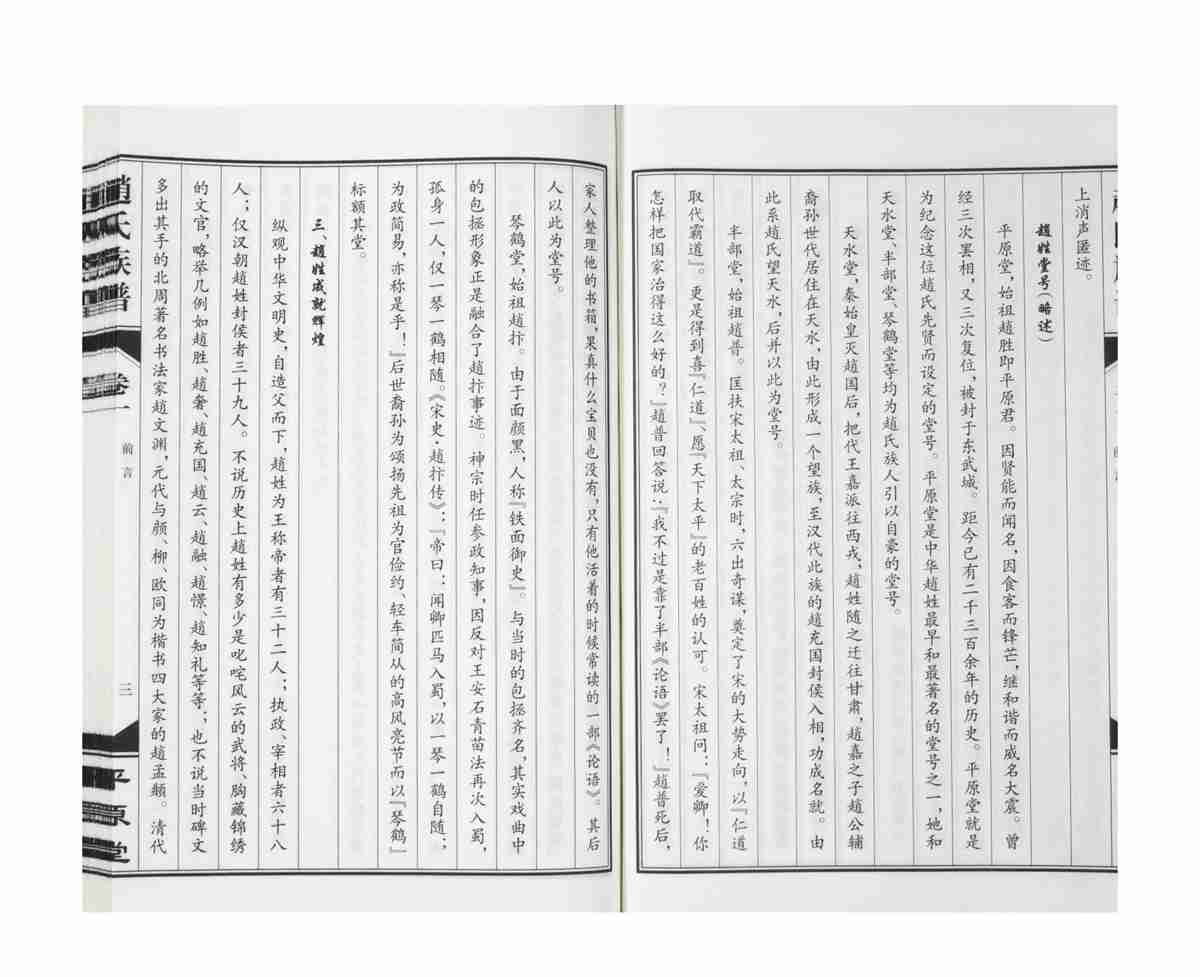 上消声匿迹。
趙姓堂号(略述)
平原堂,始祖趙胜即平原君。因贤能而闻名,因食客而锋芒,继和谐而威名大震。曾
经三次罢相,又三次复位,被封于东武城。距今已有二千三百余年的历史。平原堂就是
为纪念这位趙氏先贤而设定的堂号。平原堂是中华趙姓最早和最著名的堂号之一,她和
天水堂、半部堂、琴鹤堂等均为趙氏族人引以自豪的堂号。
天水堂,秦始皇灭趙国后,把代王嘉派往西戎,趙姓随之迁往甘肃,趙嘉之子趙公辅
裔孙世代居住在天水,由此形成一个望族,至汉代此族的趙充国封侯入相,功成名就。由
此系趙氏望天水,后并以此为堂号。
半部堂,始祖趙普。匡扶宋太祖、太宗时,六出奇谋,奠定了宋的大势走向,以『仁道
取代霸道』。更是得到喜『仁道』、愿『天下太平』的老百姓的认可。宋太祖问:『爱卿!你
怎样把国家治得这么好的?』趙普回答说:『我不过是靠了半部《论语》罢了!』趙普死后,
家人整理他的书箱,果真什么宝贝也没有,只有他活着的时候常读的一部《论语》。其后
人以此为堂号。
琴鹤堂,始祖趙抃。由于面颜黑,人称『铁面御史』。与当时的包拯齐名,其实戏曲中
的包拯形象正是融合了趙抃事迹。神宗时任参政知事,因反对王安石青苗法再次入蜀,
孤身一人,仅一琴一鹤相随。《宋史·趙抃传》:『帝曰:闻卿匹马入蜀,以一琴一鹤自随;
为政简易,亦称是乎!』后世裔孙为颂扬先祖为官俭约、轻车简从的高风亮节而以『琴鹤』
标额其堂。
三、趙姓成就辉煌
纵观中华文明史,自造父而下,趙姓为王称帝者有三十二人;执政、宰相者六十八
人;仅汉朝趙姓封侯者三十九人。不说历史上趙姓有多少是叱咤风云的武将、胸藏锦绣
的文官,略举几例如趙胜、趙奢、趙充国、趙云、趙融、趙憬、趙知礼等等;也不说当时碑文
多出其手的北周著名书法家趙文渊,元代与颜、柳、欧同为楷书四大家的趙孟頫。清代
趙氏族譜
卷一
前言
三
平原堂